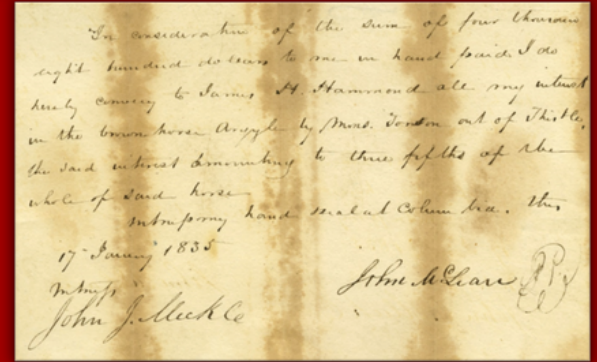 In consideration of the sum of four thousand
eight hundred dollars to me in hand paid I do
hereby convey to James H. Hammond all my interest
in the brown horse Argyle by Mons. Tonson out of Thistle,
the said interest amounting to three fifths of the
whole of said horse
Witness my hand seal at Columbia. this
17 January 1835
Witness
John McLean
John J. Mickle